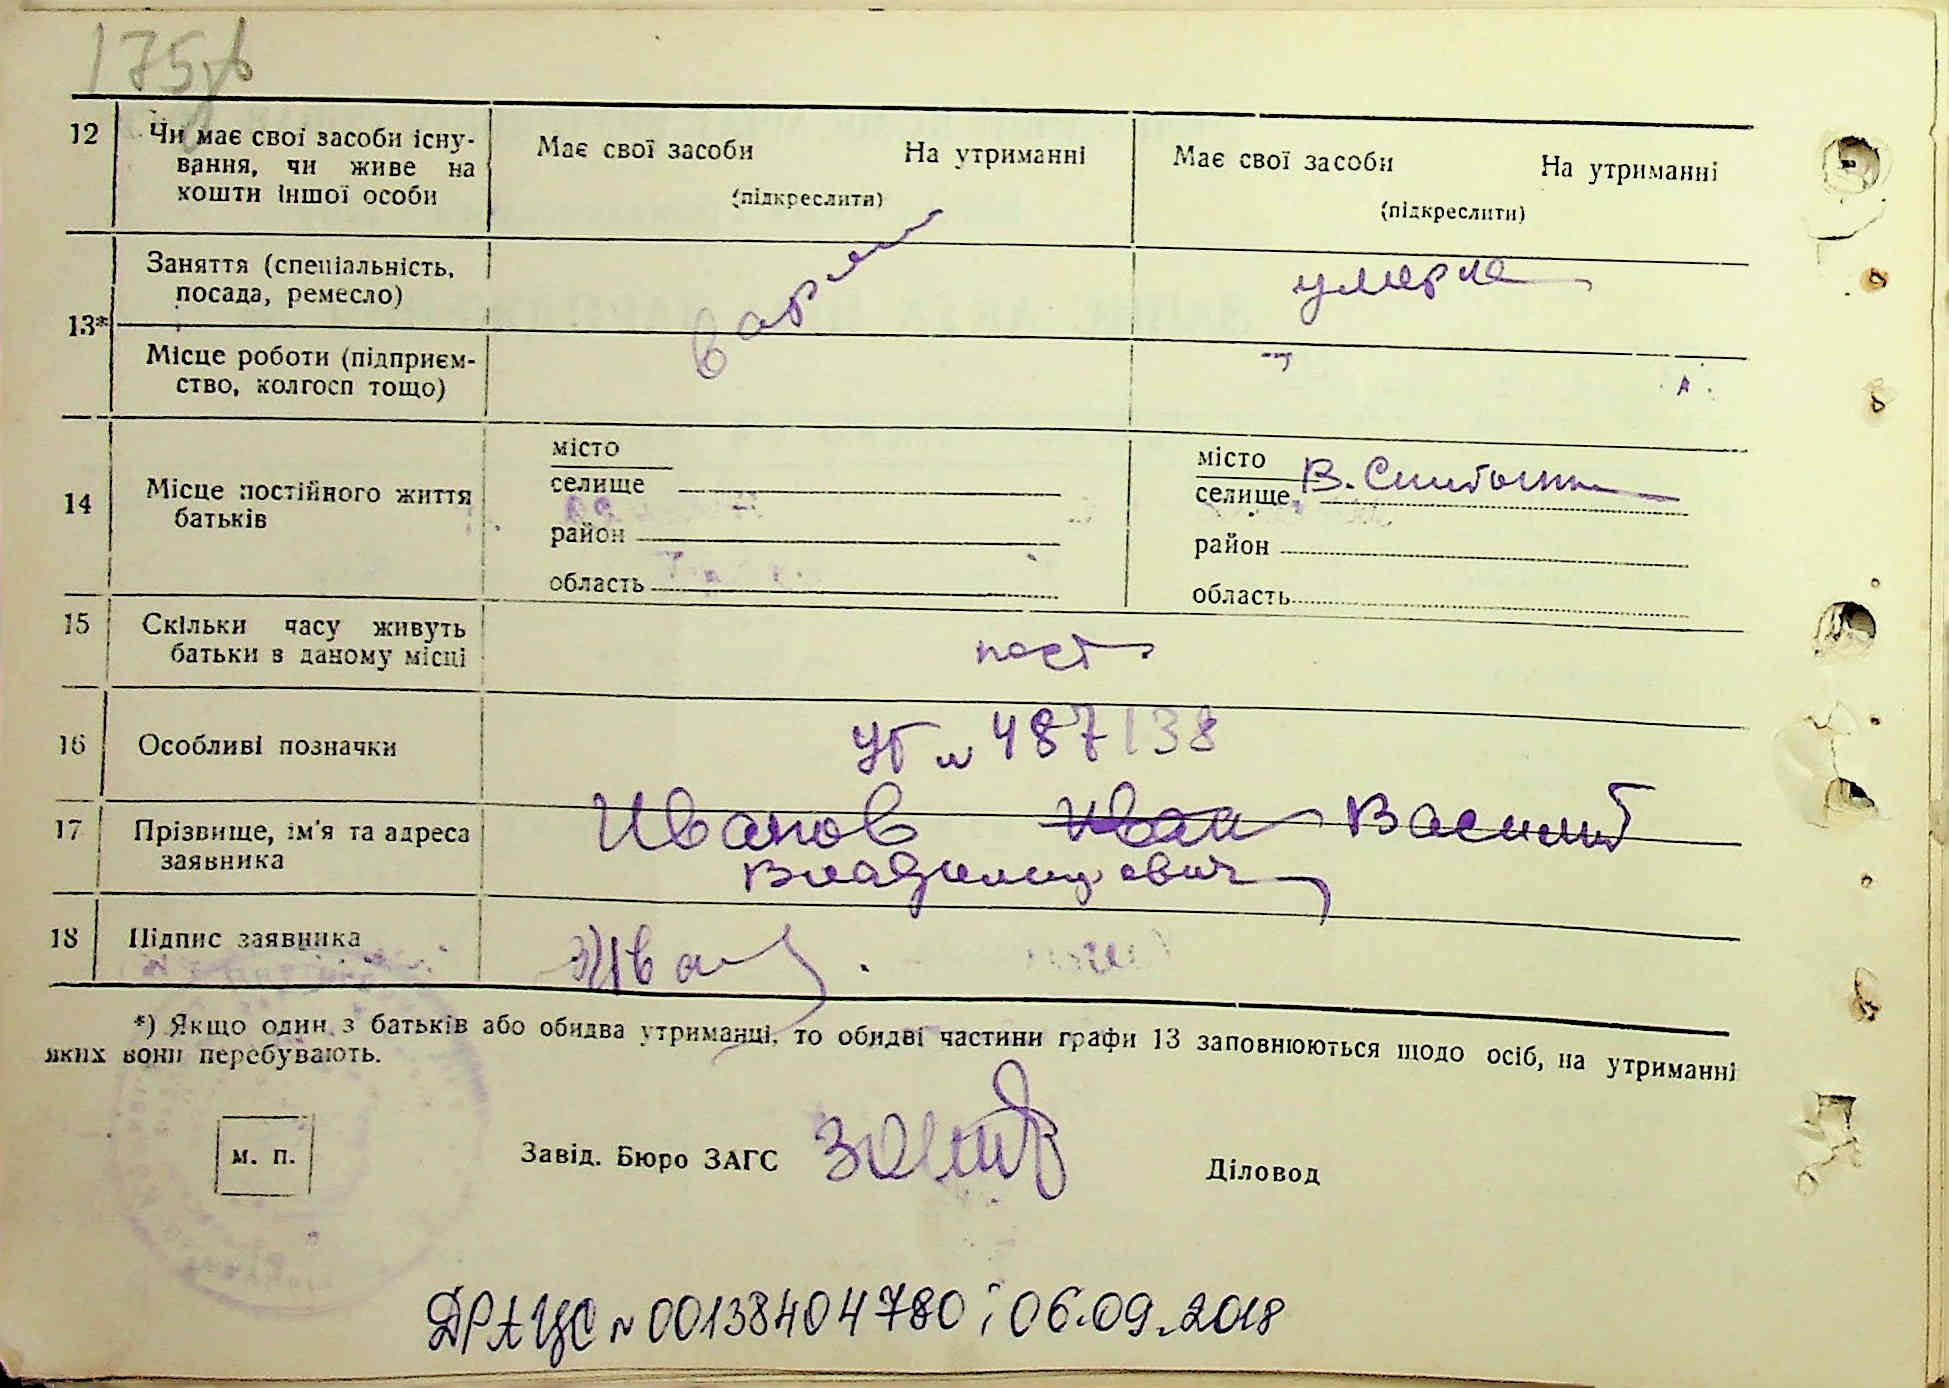 175
12 Чи має свої засоби існу-
вання, чи живе на
кошти іншої особи
Має свої засоби На утриманні
(підкреслити)
Має свої засоби На утриманні
(підкреслити)
13* Заняття (спеціальність,
посада, ремесло)
умерла
Місце роботи (підприєм-
ство, колгосп тощо)
14 Місце постійного життя
батьків
місто
селище
район
область
місто
селище В.
район
область
15 Скільки часу живуть
батьки в даному місці
пост
16 Особливі позначки
УГ № 487138
17 Прізвище, ім'я та адреса
заявника
Иванов Иван Василий
Владимирович
18 Підпис заявника
*) Якщо один з батьків або обидва утриманці, то обидві частини графи 13 заповнюються щодо осіб, на утриманні
яких вони перебувають.
м. п.
Завід. Бюро ЗАГС
Діловод
ДРАЦС № 00138404780 і 06.09.2018